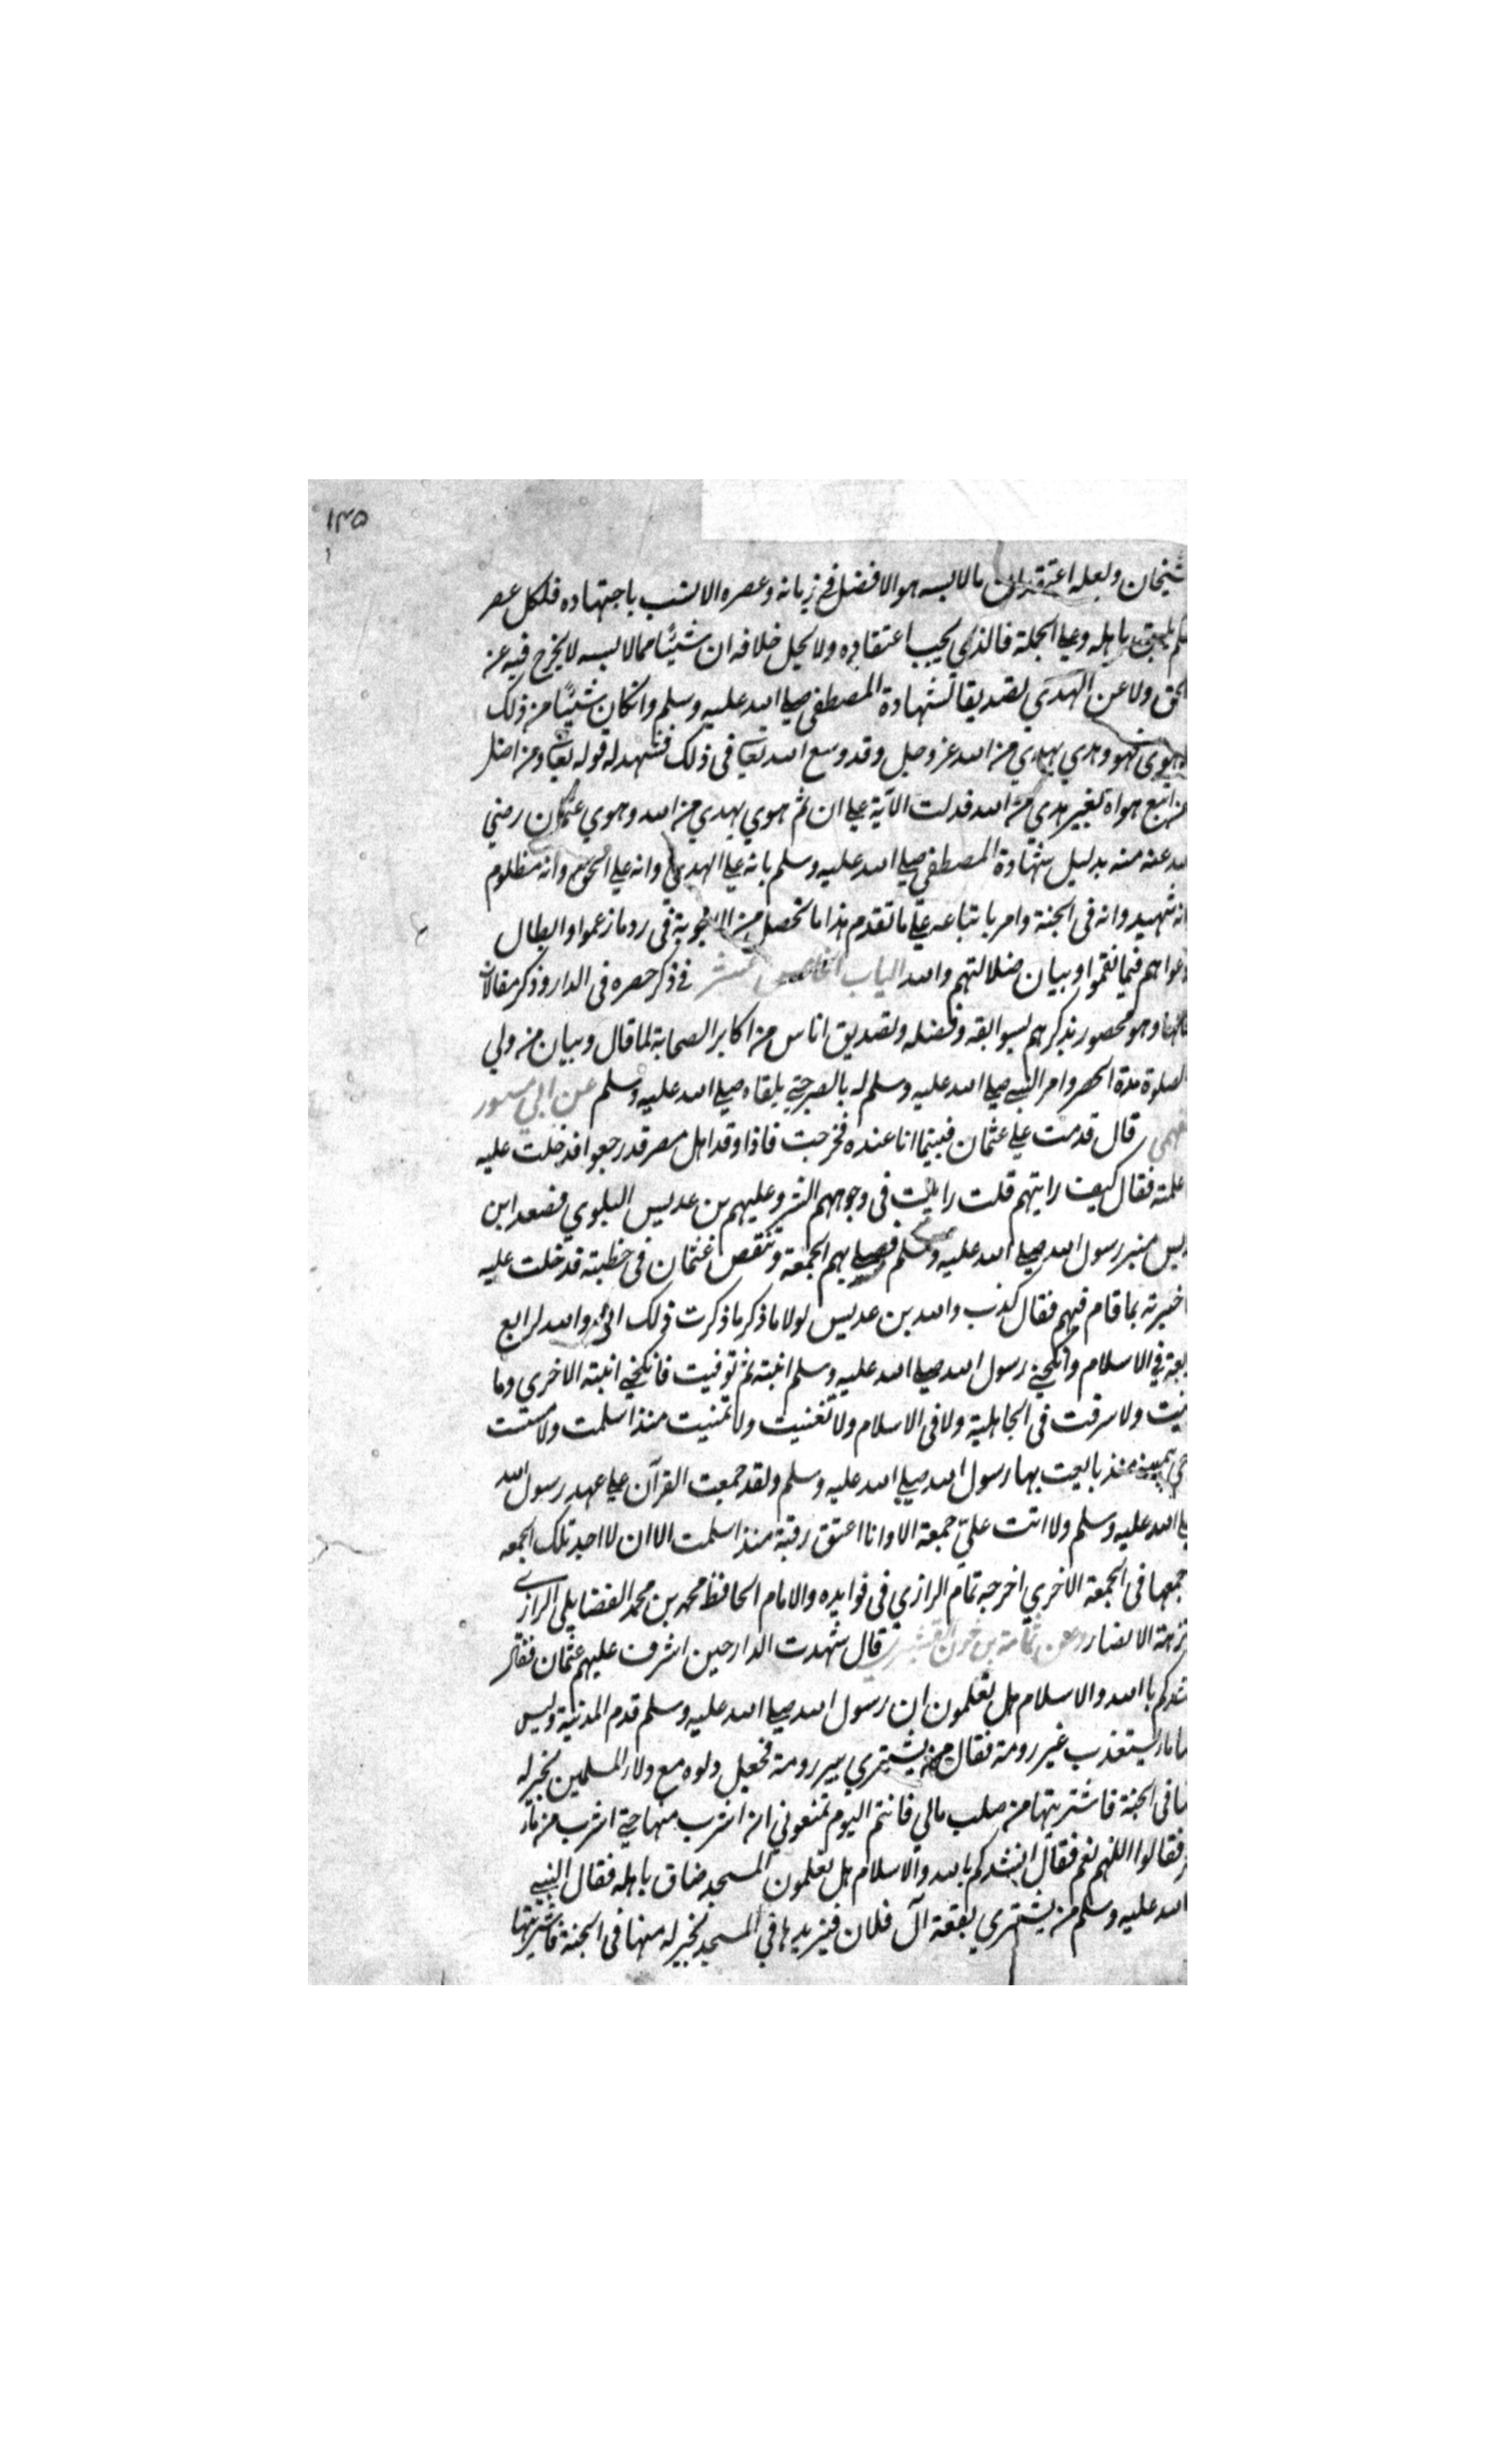 ١٣٥
شيخان ولعله اعتقد ان مالابسه هو الافضل في زمانه وعصره الانسب باجتهاده فلكل عصر
باهله وعلي الجملة فالذي يجب اعتقاده ولا يحل خلافه ان شيئا مما لابسه لا يخرج فيه عن
الحق ولا عن الهدي تصديقا لشهادة المصطفي صلي الله عليه وسلم وان كان شيئا من ذلك
هوي فهو وهدي بهدي من الله عز وجل وقد وسع الله تعالي في ذلك فشهد له قوله تعالي ومن اضل
من اتبع هواه بغير هدي من الله فدلت الآية علي ان ثم هوي بهدي من الله وهوي عثمان رضي
الله عنه منه بدليل شهادة المصطفي صلي الله عليه وسلم بانه علي الهدي وانه علي الحق وانه مظلوم
انه شهيد وانه في الجنة وامر باتباعه علي ما تقدم هذا ما تحصل من الاجوبة في رد ما زعموا وابطال
دعواهم فيما نقموا وبيان ضلالتهم والله الباب الخامس عشر في ذكر حصره في الدار وذكر مقالات
قالها وهو محصور يذكرهم بسوابقه وفضله وتصديق اناس من اكابر الصحابة لما قال وبيان من ولي
الصلوة مدة الحصر وامر النبي صلي الله عليه وسلم له بالصبر حتي يلقاه صلي الله عليه وسلم عن ابي سور
فهمي قال قدمت علي عثمان فبينما انا عنده فخرجت فاذا وفد اهل مصر قد رجعوا فدخلت عليه
علمته فقال كيف رايتهم قلت رايت في وجوههم الشر وعليهم بن عديس البلوي فصعد ابن
ديس منبر رسول الله صلي الله عليه وسلم فصلي بهم الجمعة وتنقص عثمان في خطبته فدخلت عليه
اخبرته بما قام فيهم فقال كذب والله بن عديس لولا ما ذكر ما ذكرت ذلك اني والله لرابع
بعة في الاسلام وانكحني رسول الله صلي الله عليه وسلم ابنته ثم توفيت فانكحني ابنته الاخري وما
نيت ولا سرقت في الجاهلية ولا في الاسلام ولا تغنيت ولا تمنيت منذ اسلمت ولا مسست
جي بيميني منذ بايعت بها رسول الله صلي الله عليه وسلم ولقد جمعت القرآن علي عهد رسول الله
لي الله عليه وسلم ولا اتت عليّ جمعة الا وانا اعتق رقبة منذ اسلمت الا ان لا اجد تلك الجمعه
جمعها في الجمعة الاخري اخرجه تمام الرازي في فوايده والامام الحافظ محمد بن محمد الفضايلي الرازي
نزهة الابصار وعن ثمامة بن حزن القشيري قال شهدت الدار حين اشرف عليهم عثمان فقال
نشدكم باالله والاسلام هل تعلمون ان رسول الله صلي الله عليه وسلم قدم المدينة وليس
ها ماء يستعذب غير رومة فقال من يشتري بير رومة فجعل دلوه مع دلاء المسلمين بخير له
منها في الجنة فاشتريتها من صلب مالي فانتم اليوم تمنعوني ان اشرب منها حتي اشرب من ماء
فقالوا اللهم نعم فقال انشدكم بالله والاسلام هل تعلمون المسجد ضاق باهله فقال النبي
الله عليه وسلم من يشتري بقعة آل فلان فيزيدها في المسجد بخير له منها في الجنة فاشتريتها